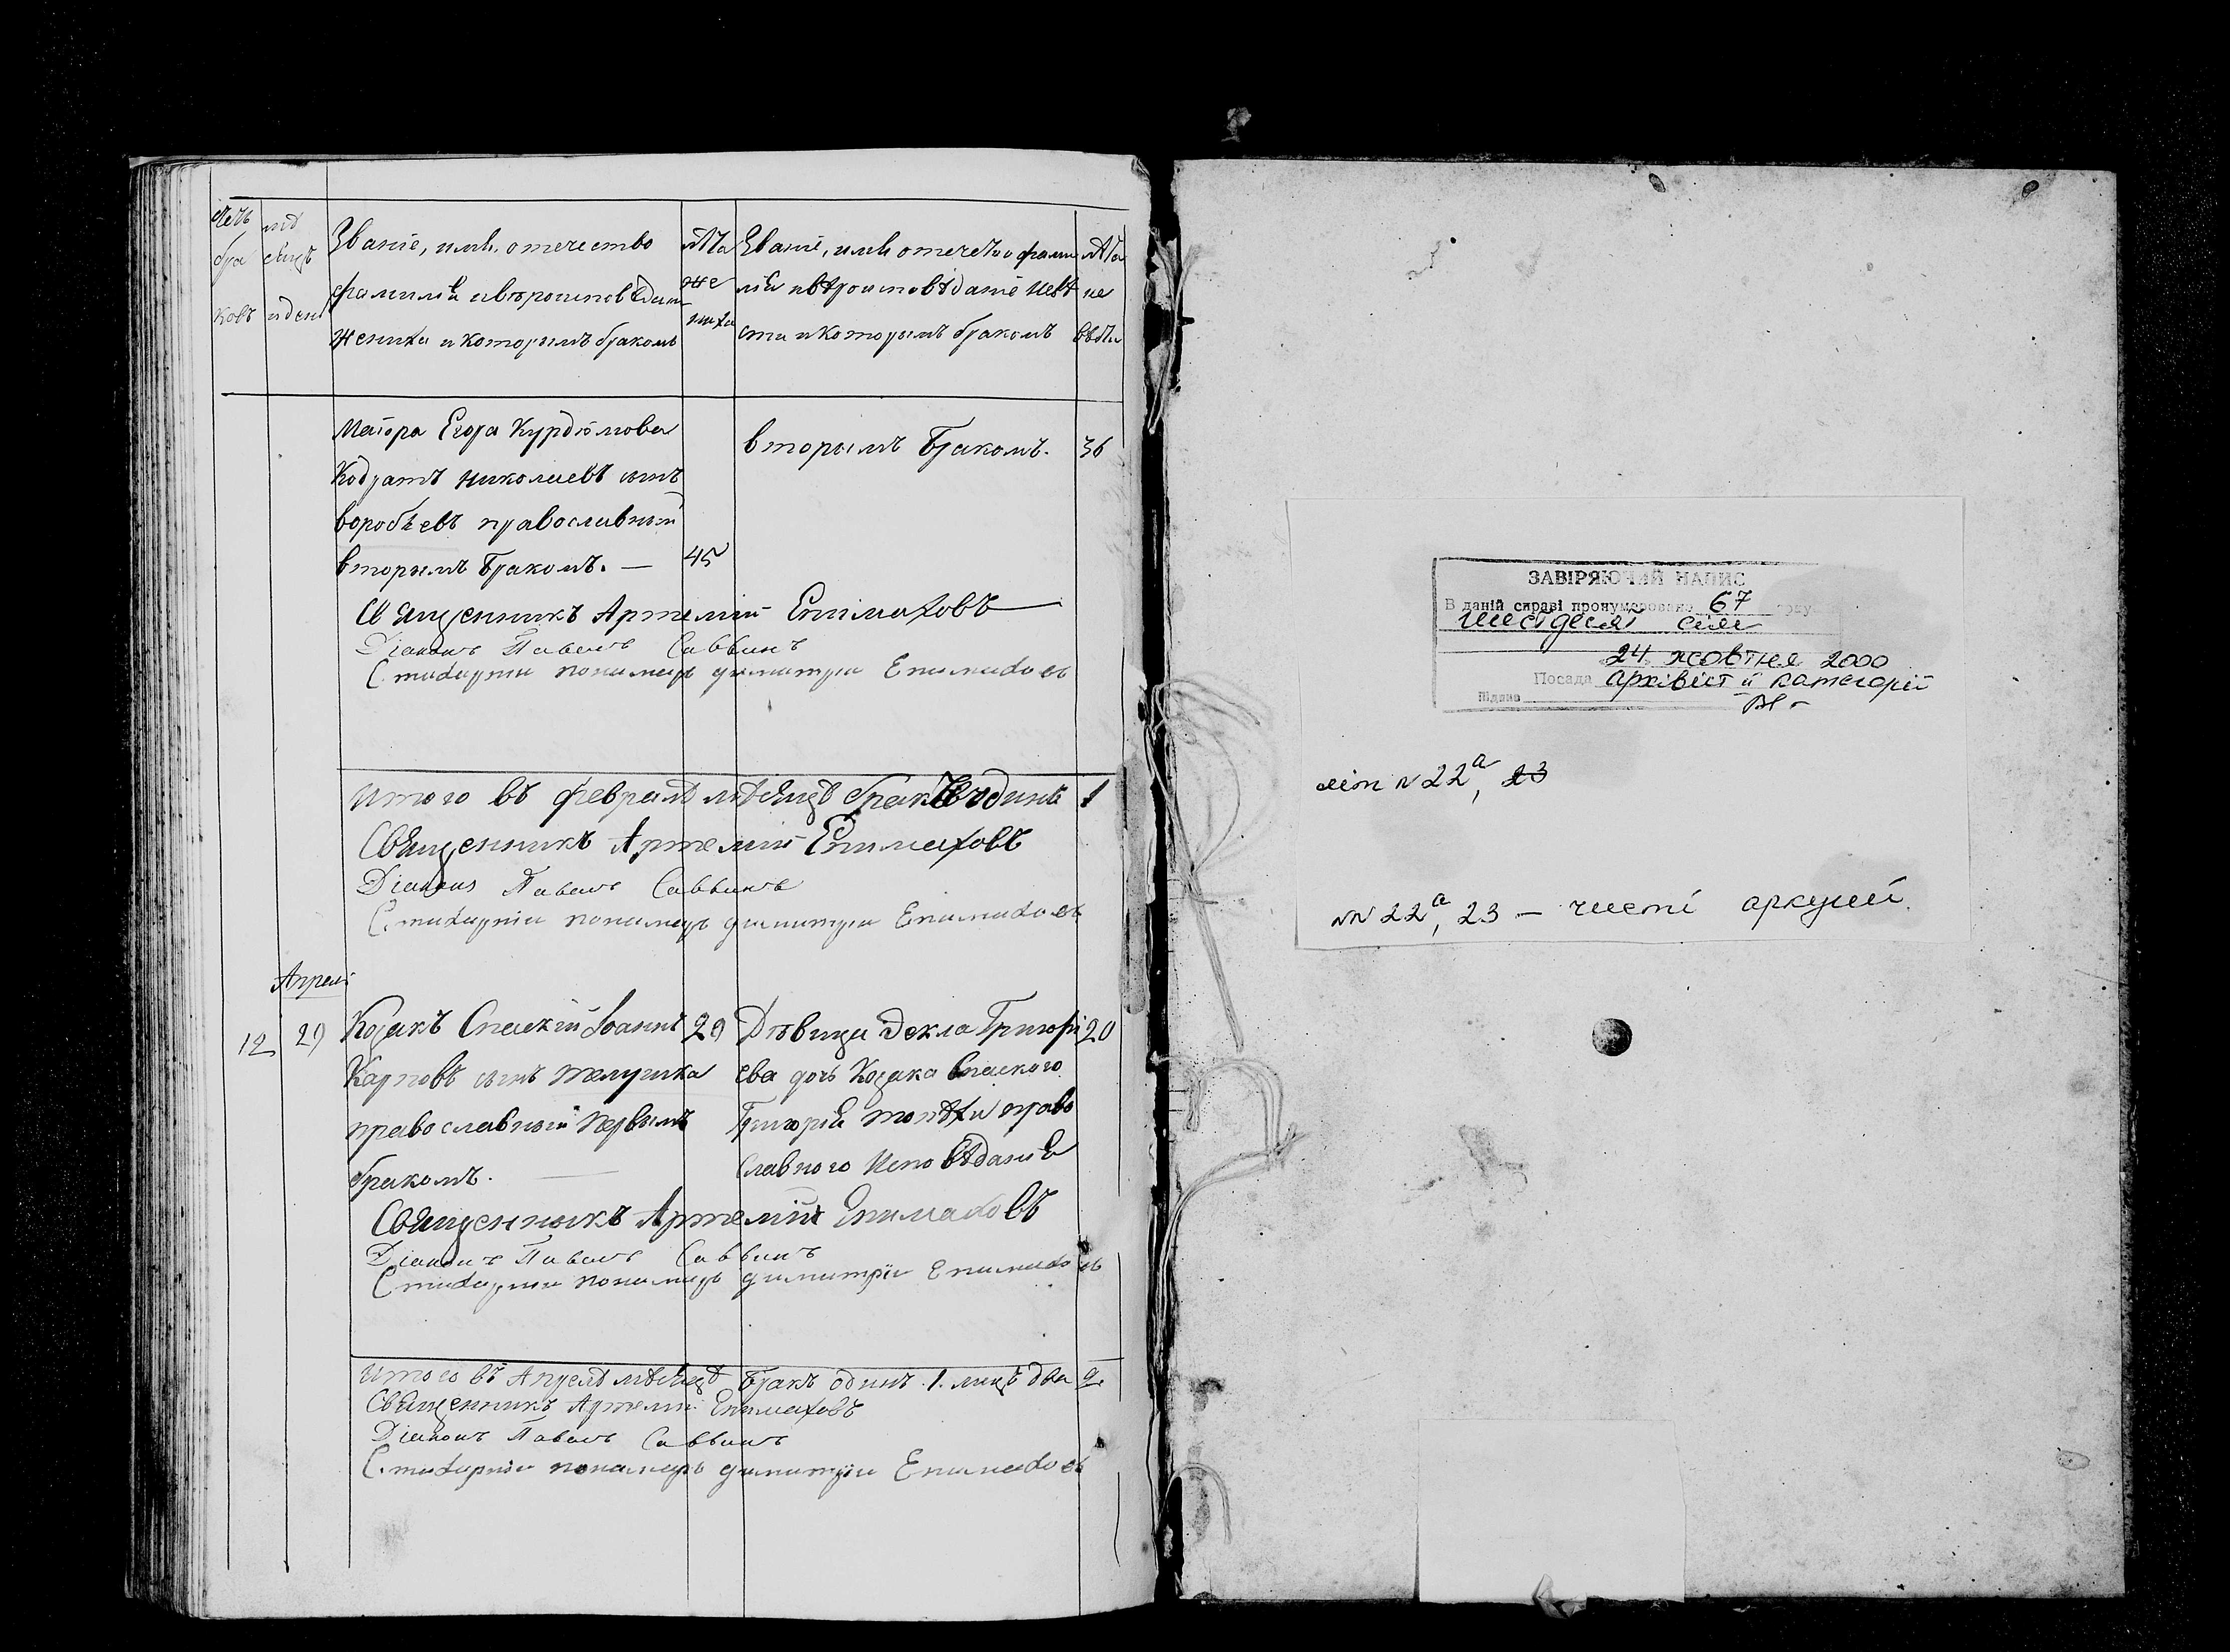 Счетъ бра ковъ
мѣсяцъ и день
Званіе, имя, отечество
фамилія и вѣроисповѣдан
жениха и которымъ бракомъ
Лѣта же ниха
Званіе, имя отечество фами
лія и вѣроисповѣданіе невѣ
сты и которымъ бракомъ
Лѣта не вѣсты
Маіора Егора Курдюмова
Кодратъ Николаевъ сынъ
воробьевъ православный
вторымъ бракомъ. — 45
вторымъ бракомъ. 36
Священникъ Артемій Епимаховъ
Діаконъ Павелъ Саввинъ
Стихарный пономарь Димитрій Епимаховъ
Итого въ февралѣ мѣсяцѣ бракъ одинъ 1
Священникъ Артемій Епимаховъ
Діаконъ Павелъ Саввинъ
Стихарный пономарь Димитрій Епимаховъ
Апрель
12 29 Козакъ Спаскій Іоаннъ 29
Карповъ сынъ Желушка
православный первымъ
бракомъ.
Дѣвица Ѳекла Григорі 20
ева дочь Козака Спаского
Григорія право
славного Исповѣданія
Священникъ Артемій Епимаховъ
Діаконъ Павелъ Саввинъ
Стихарный пономарь Димитрій Епимаховъ
Итого въ Апрелѣ мѣсяцѣ бракъ одинъ 1. лицъ два 2.
Священникъ Артемій Епимаховъ
Діаконъ Павелъ Саввинъ
Стихарный пономарь Димитрій Епимаховъ
ЗАВІРЯЮЧИЙ НАПИС
В даній справі пронумеровано 67
шістдесят сім
24 жовтня 2000
Посада архівіст ІІ категорії
Підпис
літ N 22а, 23
NN 22а, 23 — чисті аркуші.